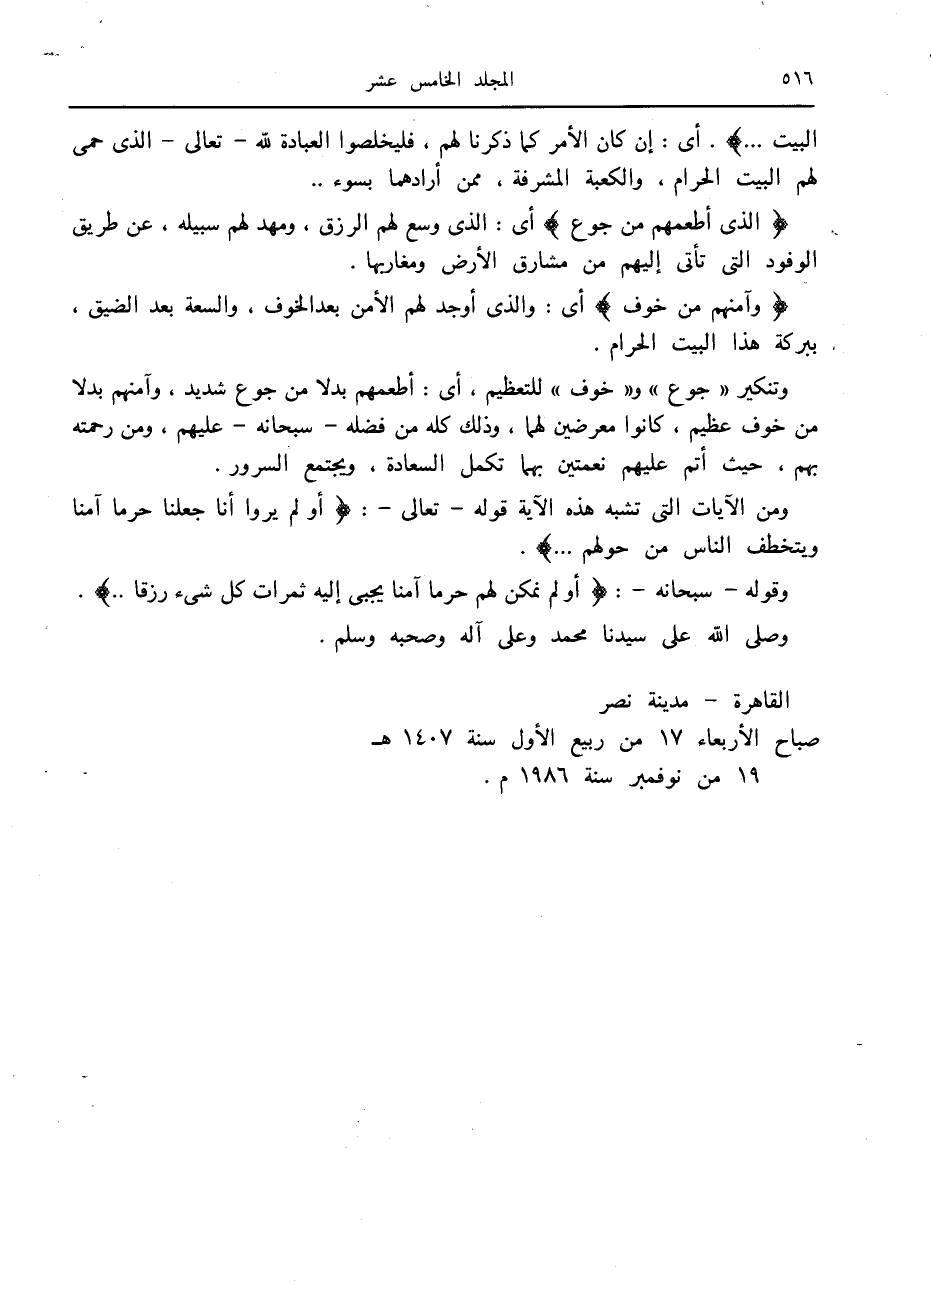 ٥١٦ المجلد الخامس عشر
البيت ...﴾ . أى : إن كان الأمر كما ذكرنا لهم ، فليخلصوا العبادة لله – تعالى – الذى حمى
لهم البيت الحرام ، والكعبة المشرفة ، ممن أرادهما بسوء ..
﴿ الذى أطعمهم من جوع ﴾ أى : الذى وسع لهم الرزق ، ومهد لهم سبيله ، عن طريق
الوفود التى تأتى إليهم من مشارق الأرض ومغاربها .
﴿ وآمنهم من خوف ﴾ أى : والذى أوجد لهم الأمن بعدالخوف ، والسعة بعد الضيق ،
ببركة هذا البيت الحرام .
وتنكير « جوع » و« خوف » للتعظيم ، أى : أطعمهم بدلا من جوع شديد ، وآمنهم بدلا
من خوف عظيم ، كانوا معرضين لهما ، وذلك كله من فضله – سبحانه – عليهم ، ومن رحمته
بهم ، حيث أتم عليهم نعمتين بهما تكمل السعادة ، ويجتمع السرور .
ومن الآيات التى تشبه هذه الآية قوله – تعالى – : ﴿ أو لم يروا أنا جعلنا حرما آمنا
ويتخطف الناس من حولهم ...﴾ .
وقوله – سبحانه – : ﴿ أو لم نمكن لهم حرما آمنا يجبى إليه ثمرات كل شىء رزقا ..﴾ .
وصلى الله على سيدنا محمد وعلى آله وصحبه وسلم .
القاهرة – مدينة نصر
صباح الأربعاء ١٧ من ربيع الأول سنة ١٤٠٧ هـ
١٩ من نوفمبر سنة ١٩٨٦ م .